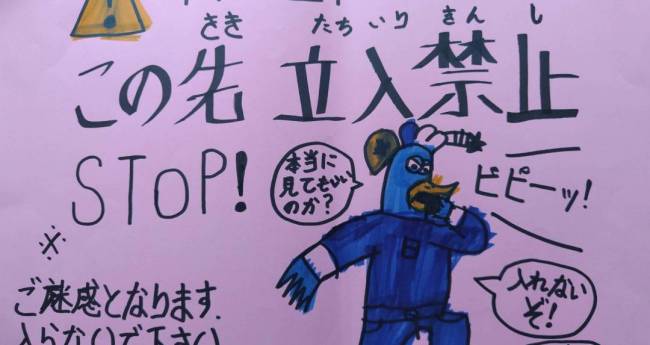 さき たちいりきんし
この先 立入禁止
STOP!
本当に
見てもいい
のか?
ピピーッ!
※
ご迷惑となります.
入らないで下さい
入れない
ぞ!